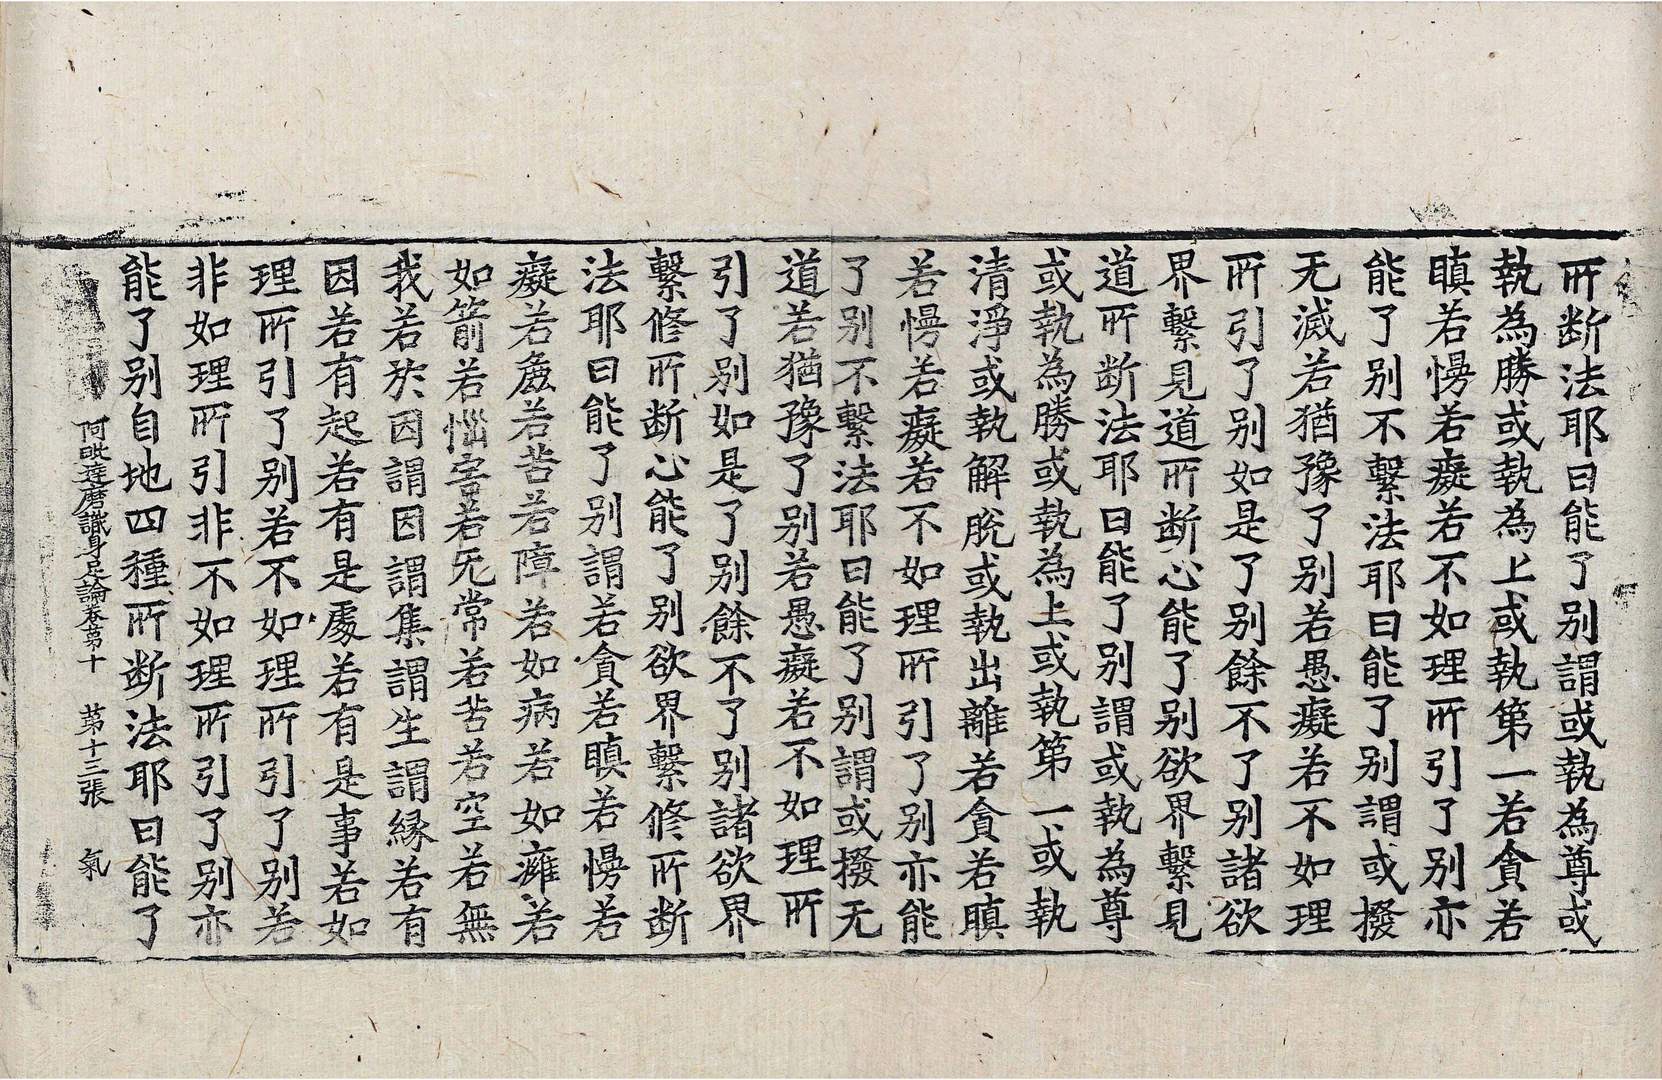 所断法耶曰能了别謂或執為尊或
執為勝或執為上或執第一若貪若
瞋若慢若癡若不如理所引了别亦
能了别不繫法耶曰能了别謂或撥
无滅若猶豫了别若愚癡若不如理
所引了别如是了别餘不了别諸欲
界繫見道所断心能了别欲界繫見
道所断法耶曰能了别謂或執為尊
或執為勝或執為上或執第一或執
清淨或執解脫或執出離若貪若瞋
若慢若癡若不如理所引了别亦能
了别不繫法耶曰能了别謂或撥无
道若猶豫了别若愚癡若不如理所
引了别如是了别餘不了别諸欲界
繫修所断心能了别欲界繫修所断
法耶曰能了别謂若貪若瞋若慢若
癡若麁若苦若障若如病若如癰若
如箭若惱害若无常若苦若空若無
我若於因謂因謂集謂生謂縁若有
因若有起若有是處若有是事若如
理所引了别若不如理所引了别若
非如理所引非不如理所引了别亦
能了别自地四種所断法耶曰能了
阿毗達磨識身足論卷第十 第十三張 氣